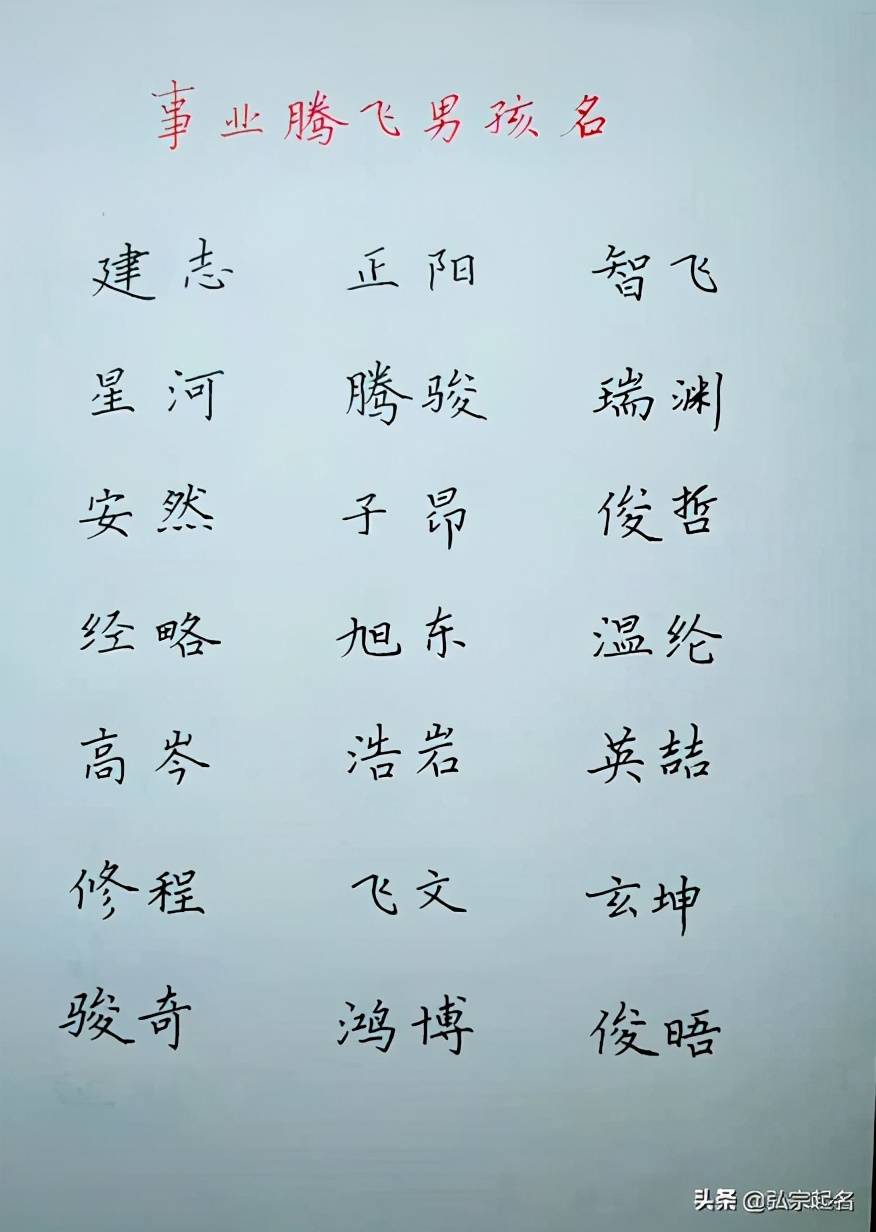 事业腾飞男孩名
建志 正阳 智飞
星河 腾骏 瑞渊
安然 子昂 俊哲
经略 旭东 温纶
高岑 浩岩 英喆
修程 飞文 玄坤
骏奇 鸿博 俊晤
头条 @弘宗起名